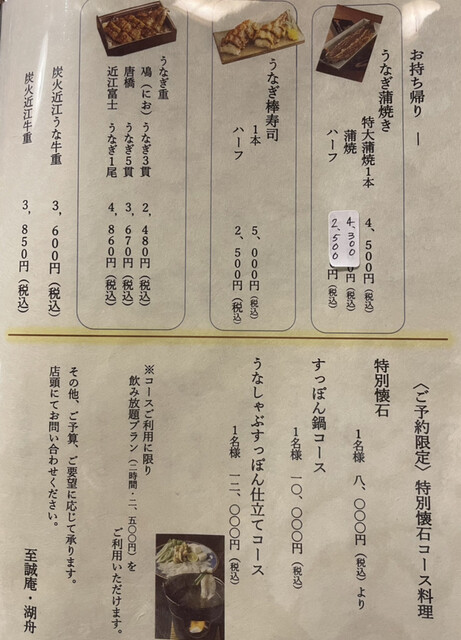 お持ち帰り ー
うなぎ蒲焼き
特大蒲焼1本 4、500円（税込）
蒲焼 4,300円（税込）
ハーフ 2,500円（税込）
うなぎ棒寿司
1本 5、000円（税込）
ハーフ 2、500円（税込）
うなぎ重
鳰（にお） うなぎ3貫 2、480円（税込）
唐橋 うなぎ5貫 3、670円（税込）
近江富士 うなぎ1尾 4、860円（税込）
炭火近江うな牛重 3、600円（税込）
炭火近江牛重 3、850円（税込）
〈ご予約限定〉特別懐石コース料理
特別懐石
1名様 八、〇〇〇円（税込）より
すっぽん鍋コース
1名様 一〇、〇〇〇円（税込）
うなしゃぶすっぽん仕立てコース
1名様 一二、〇〇〇円（税込）
※コースご利用に限り
飲み放題プラン（二時間・二、五〇〇円）を
ご利用いただけます。
その他、ご予算、ご要望に応じて承ります。
店頭にてお問い合わせください。
至誠庵・湖舟